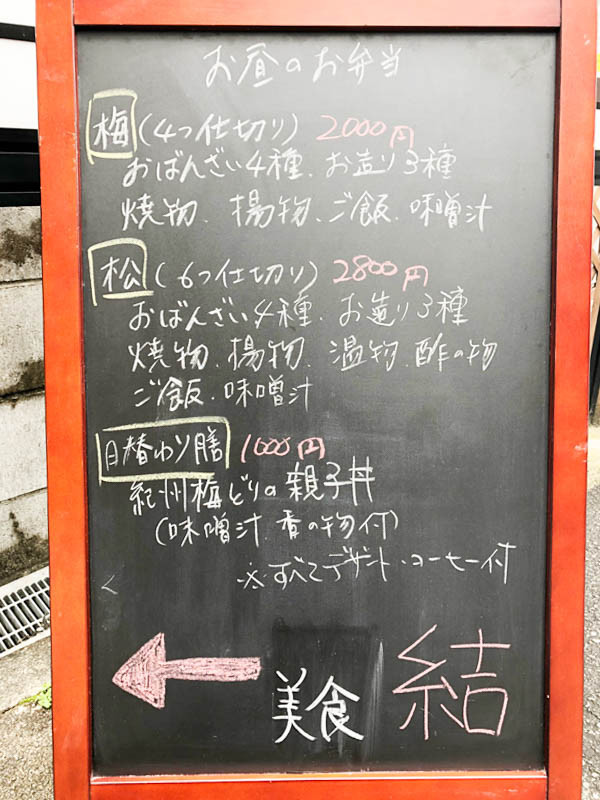 お昼のお弁当
梅(4つ仕切り) 2000円
おばんざい4種、お造り3種
焼物、揚物、ご飯、味噌汁
松(6つ仕切り) 2800円
おばんざい4種、お造り3種
焼物、揚物、温物、酢の物
ご飯、味噌汁
日替わり膳 1000円
紀州梅どりの親子丼
(味噌汁、香の物付)
※すべてデザート・コーヒー付
美食 結